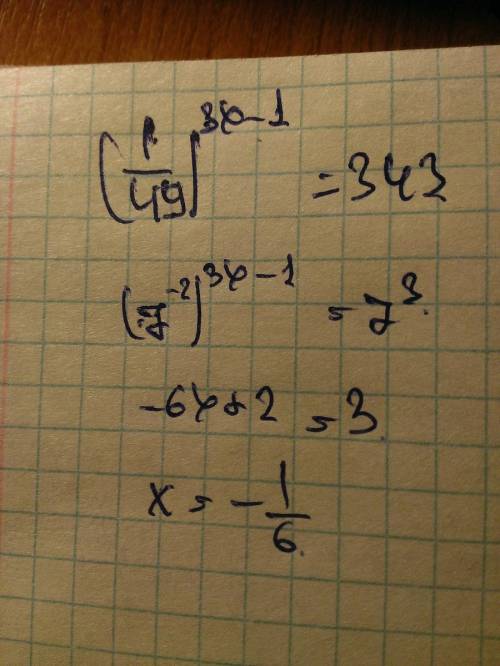 (1/49)^(3x-1) = 343
(7^(-2))^(3x-1) = 7^3
-6x+2 = 3
x = -1/6